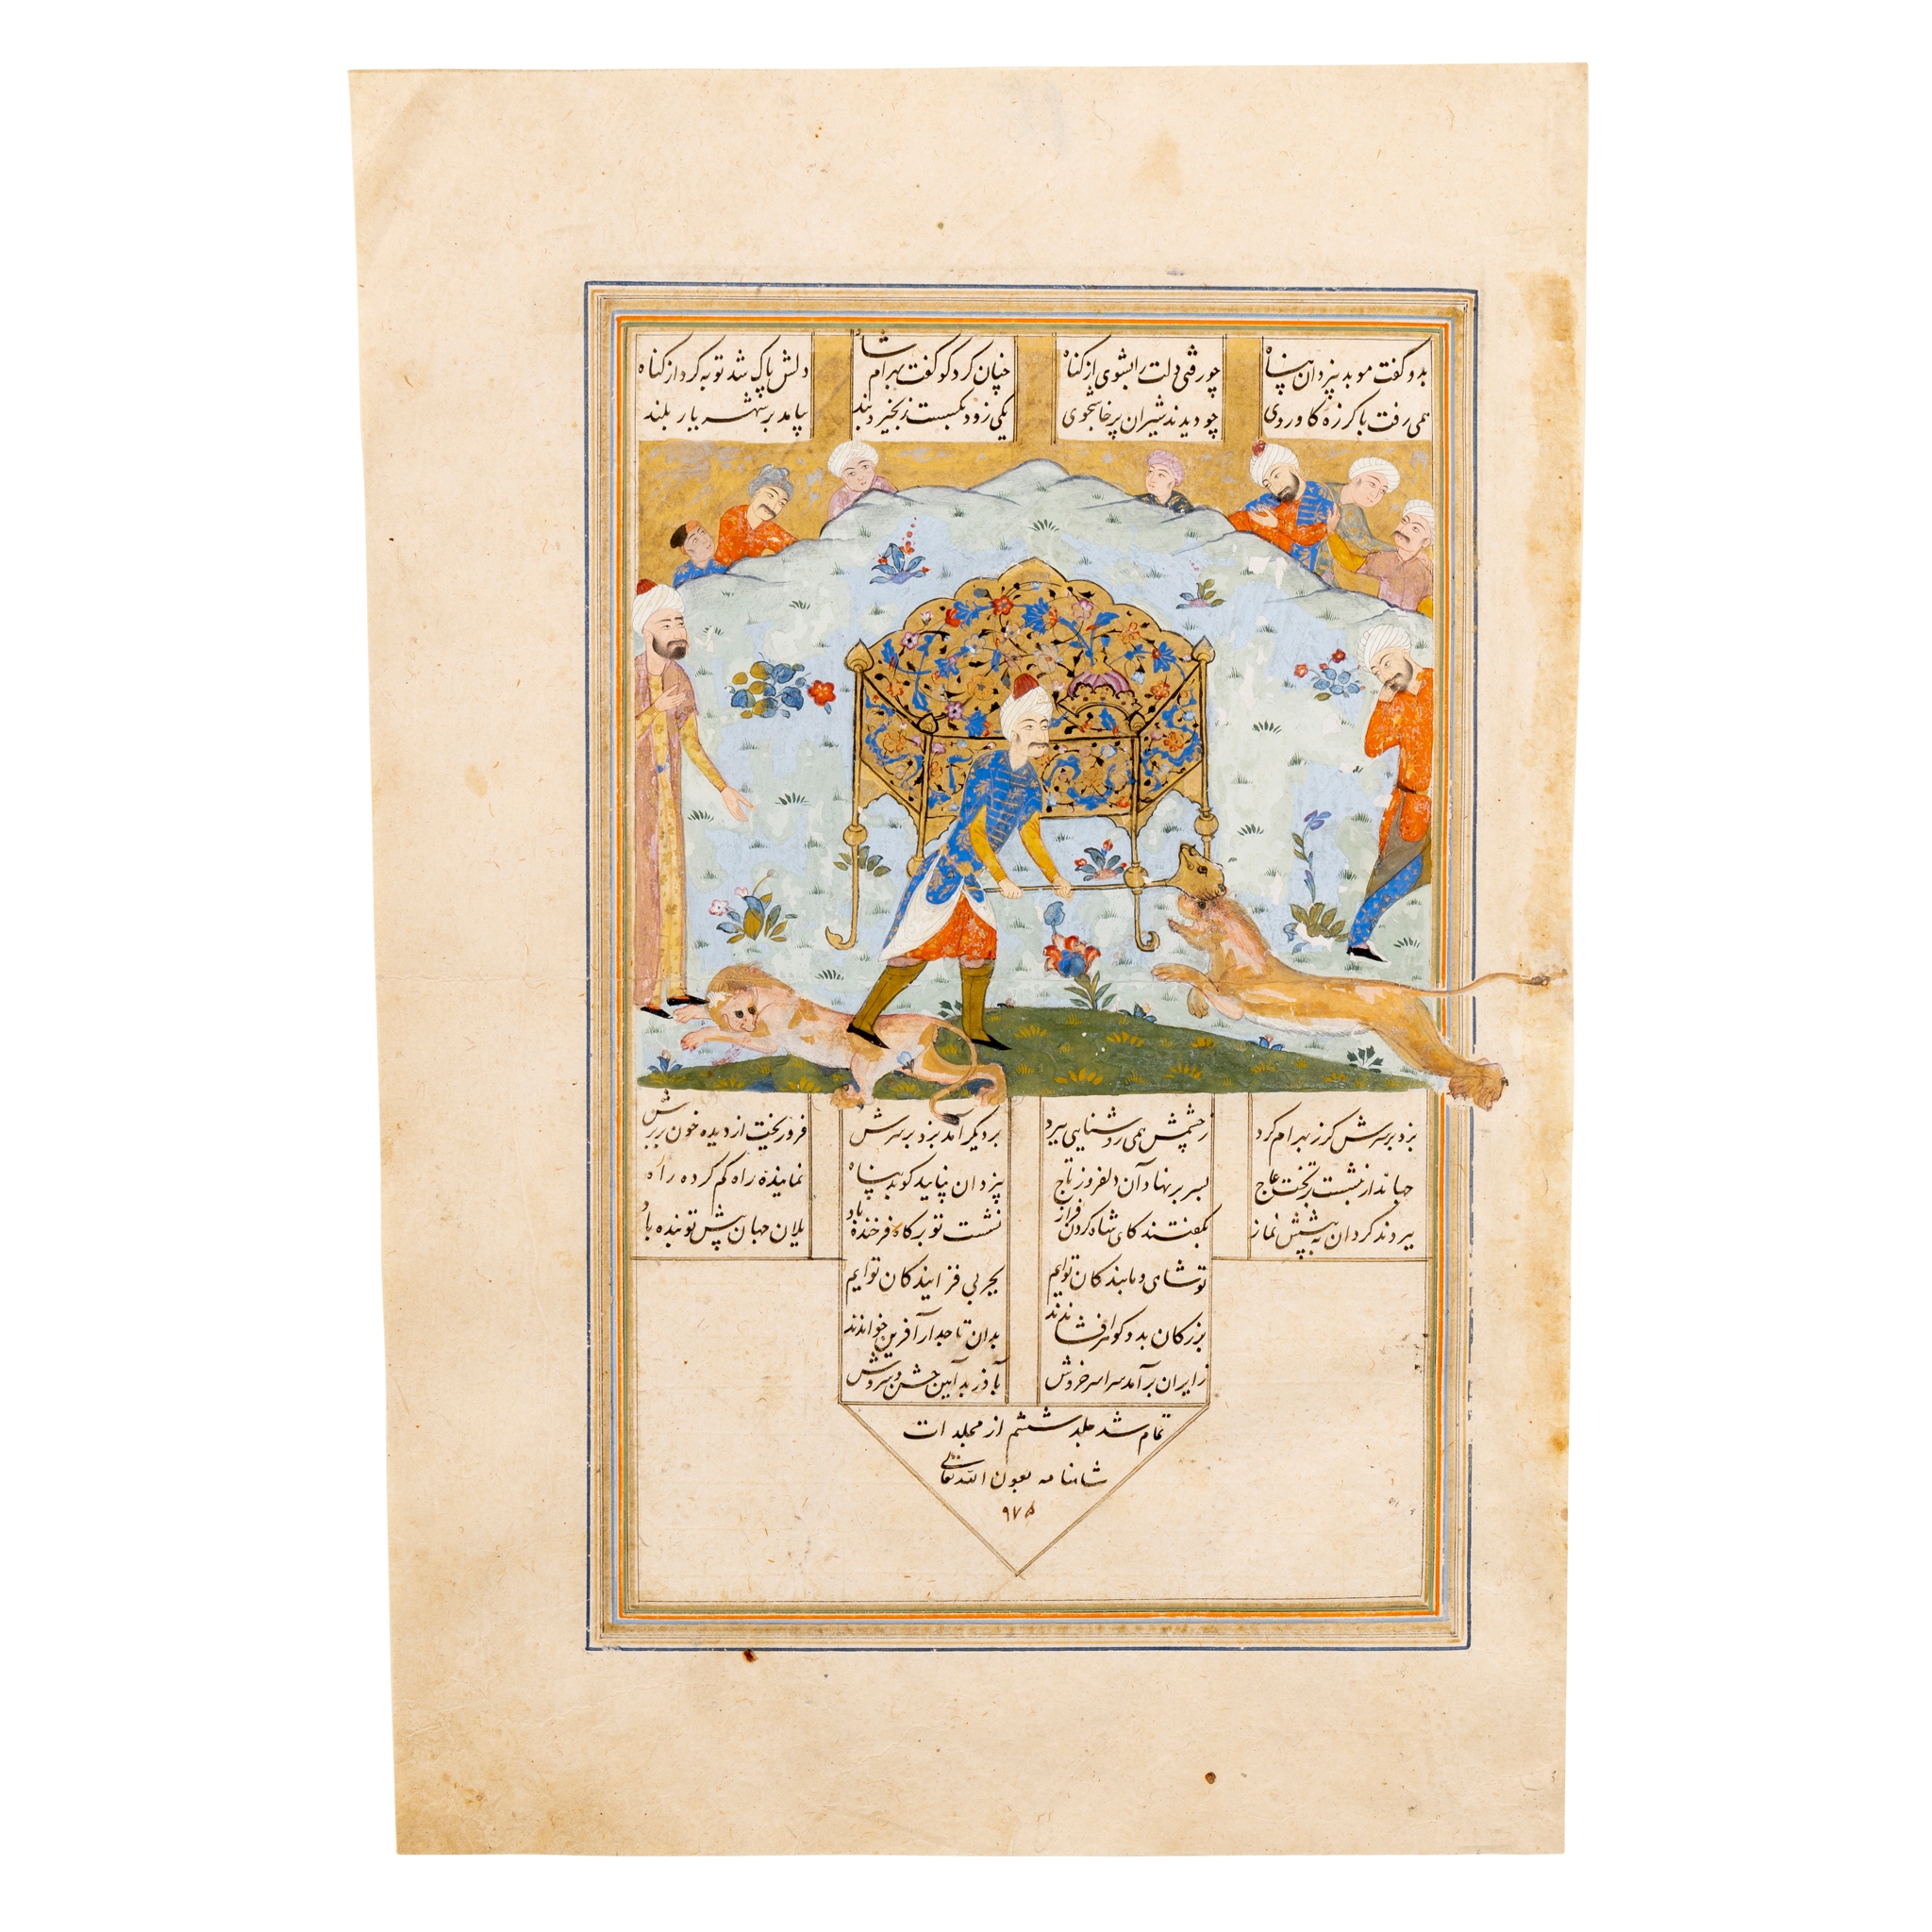 بدو گفت موبد بیزدان پناه چو رفتی دلت را بشوی از گناه چنان کرد کو گفت بهرام شاه دلش پاک شد توبه کرد از گناه
همی رفت با کرزه کاوروی چو دیدند شیران پرخاشجوی یکی زود بکسست زنجیر و بند بیامد بر شهریار بلند
بزد بر سرش کرز بهرام کرد زچشمش همی روشنایی ببرد بر دیکر آمد بزد بر سرش فرو ریخت از دیده خون بر برش
جهاندار بنشست بر تخت عاج بسر بر نهاد آن دلفروز تاج بیزدان پناهید کو بد پناه نماینده راه کم کرده راه
ببردند کردان به پیشش نماز بکفتند کای شاه کردن فراز نشست تو بر کاه فرخنده باد یلان جهان پیش تو بنده باد
تو شاهی و ما بندکان توایم بخوبی فزایندکان توایم
بزرکان بدو کوهر افشاندند بدان تاجدار آفرین خواندند
ز ایران برآمد سراسر خروش بآذر بد آیین جشن و سروش
تمام شد جلد ششم از مجلدات
شاهنامه بعون الله تعالی
۹۷۵